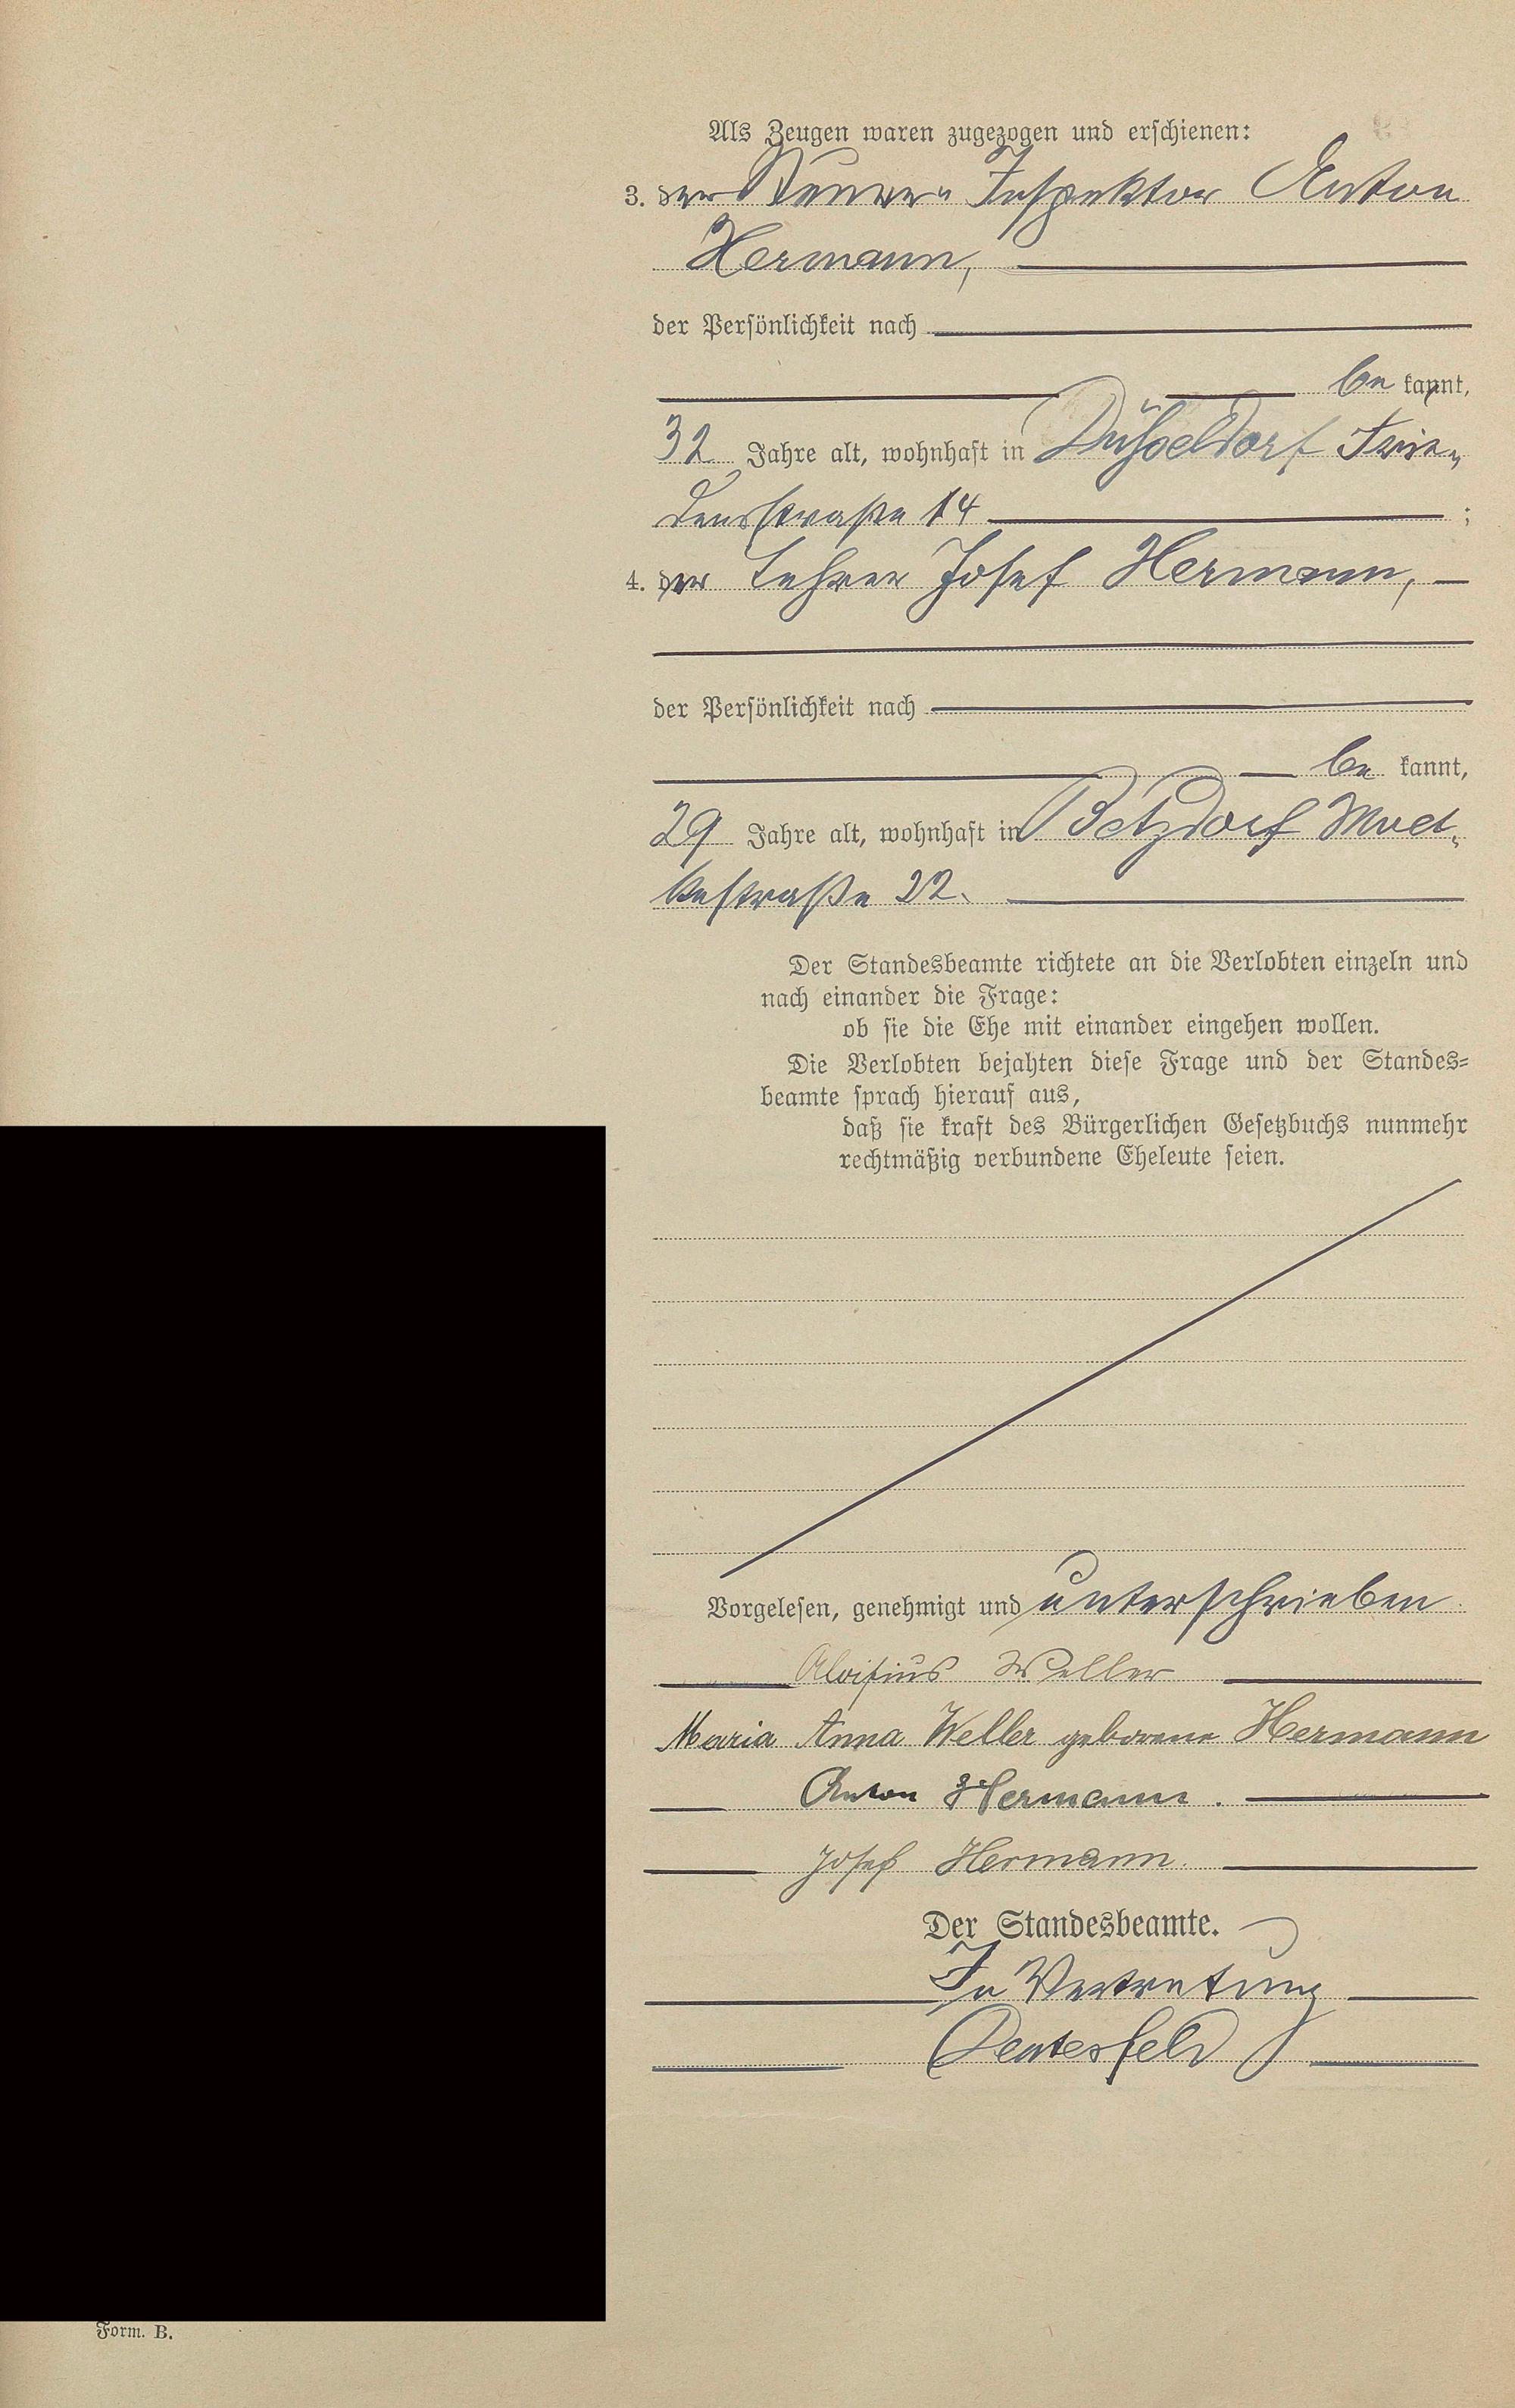 Als Zeugen waren zugezogen und erschienen:
3. der Steuer- Inspektor Anton
Hermann,
der Persönlichkeit nach
be kannt,
32 Jahre alt, wohnhaft in Düsseldorf Frie-
densstraße 14 ;
4. der Lehrer Josef Hermann,
der Persönlichkeit nach
be kannt,
29 Jahre alt, wohnhaft in Betzdorf Molt-
kestraße 22.
Der Standesbeamte richtete an die Verlobten einzeln und
nach einander die Frage:
ob sie die Ehe mit einander eingehen wollen.
Die Verlobten bejahten diese Frage und der Standes=
beamte sprach hierauf aus,
daß sie kraft des Bürgerlichen Gesetzbuchs nunmehr
rechtmäßig verbundene Eheleute seien.
Vorgelesen, genehmigt und unterschrieben
Aloisius Weller
Maria Anna Weller geborene Hermann
Anton Hermann.
Josef Hermann.
Der Standesbeamte.
In Vertretung
Form. B.